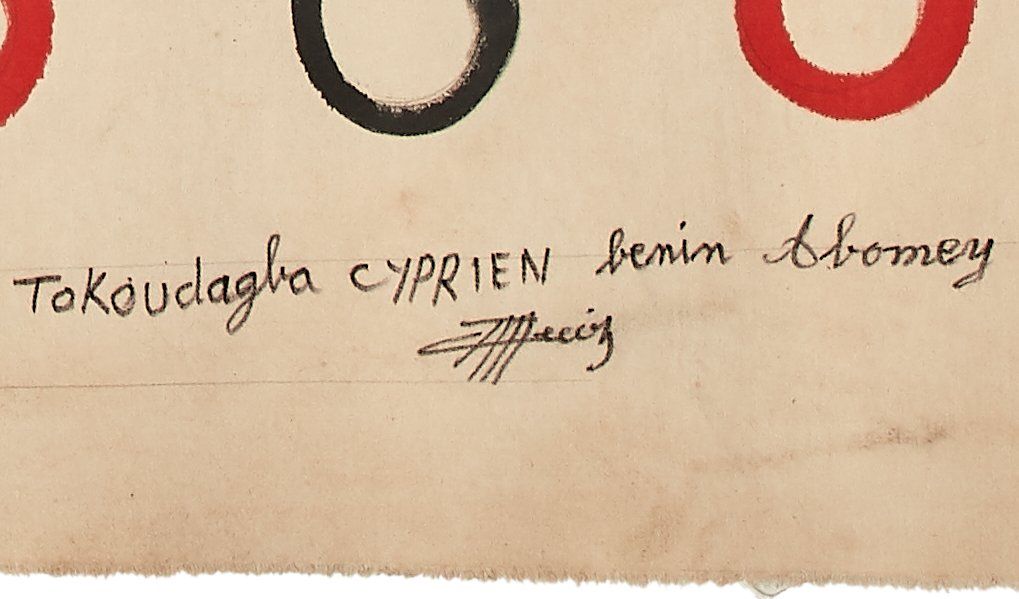 ToKoudagba CYPRIEN benin Abomey